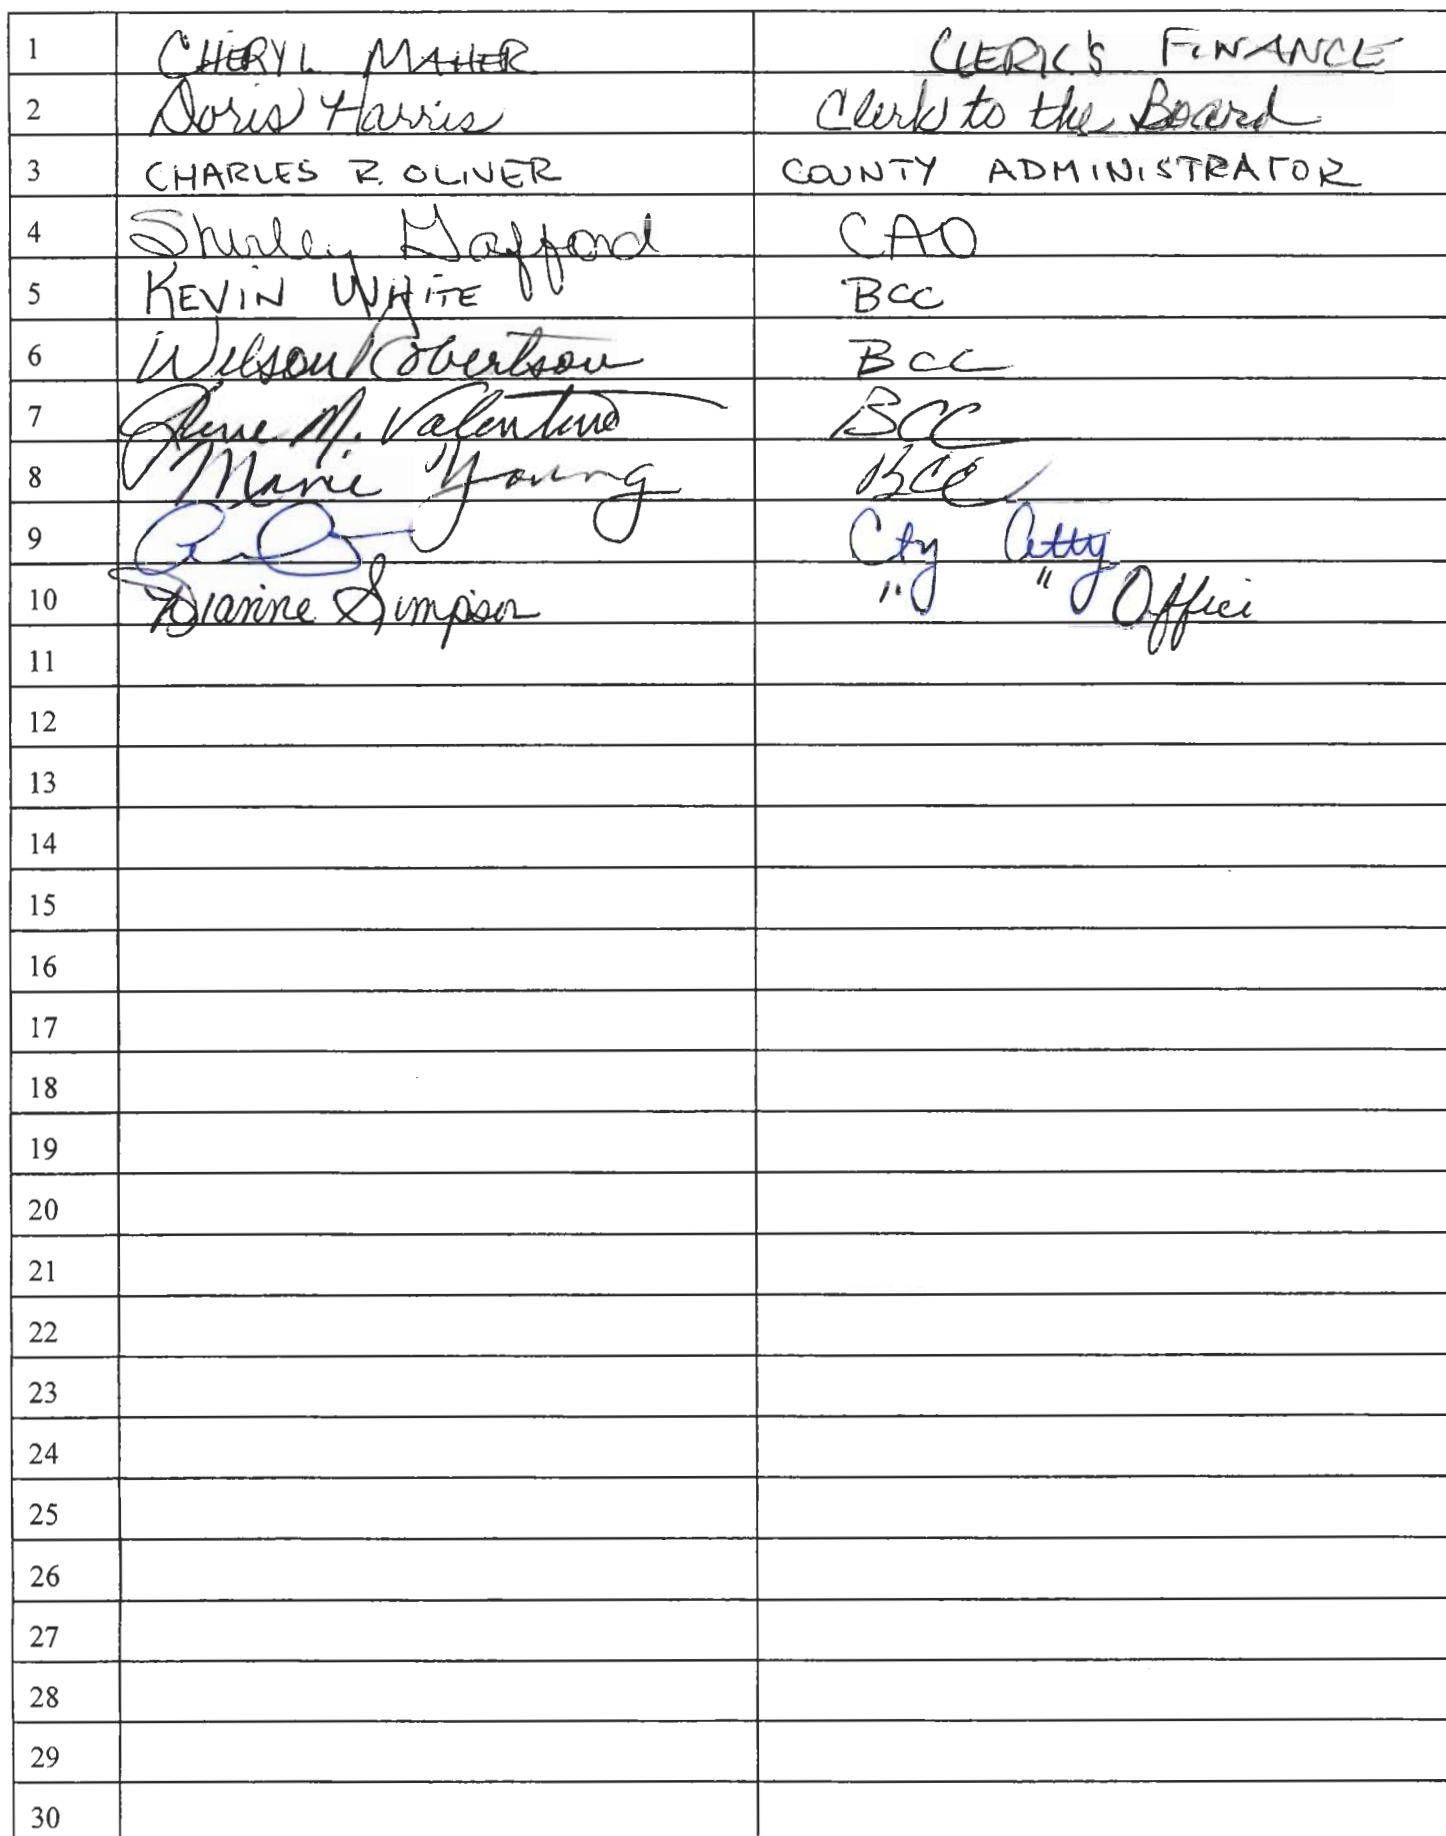 1 CHERYL MAHER CLERK'S FINANCE
2 Doris Harris Clerk to the Board
3 CHARLES R. OLIVER COUNTY ADMINISTRATOR
4 Shirley Gafford CAO
5 KEVIN WHITE BCC
6 Wilson Robertson BCC
7 M. Valentino BCC
8 Marie Young BCC
9 Cty Atty
10 Dianne Simpson " " Office
11
12
13
14
15
16
17
18
19
20
21
22
23
24
25
26
27
28
29
30